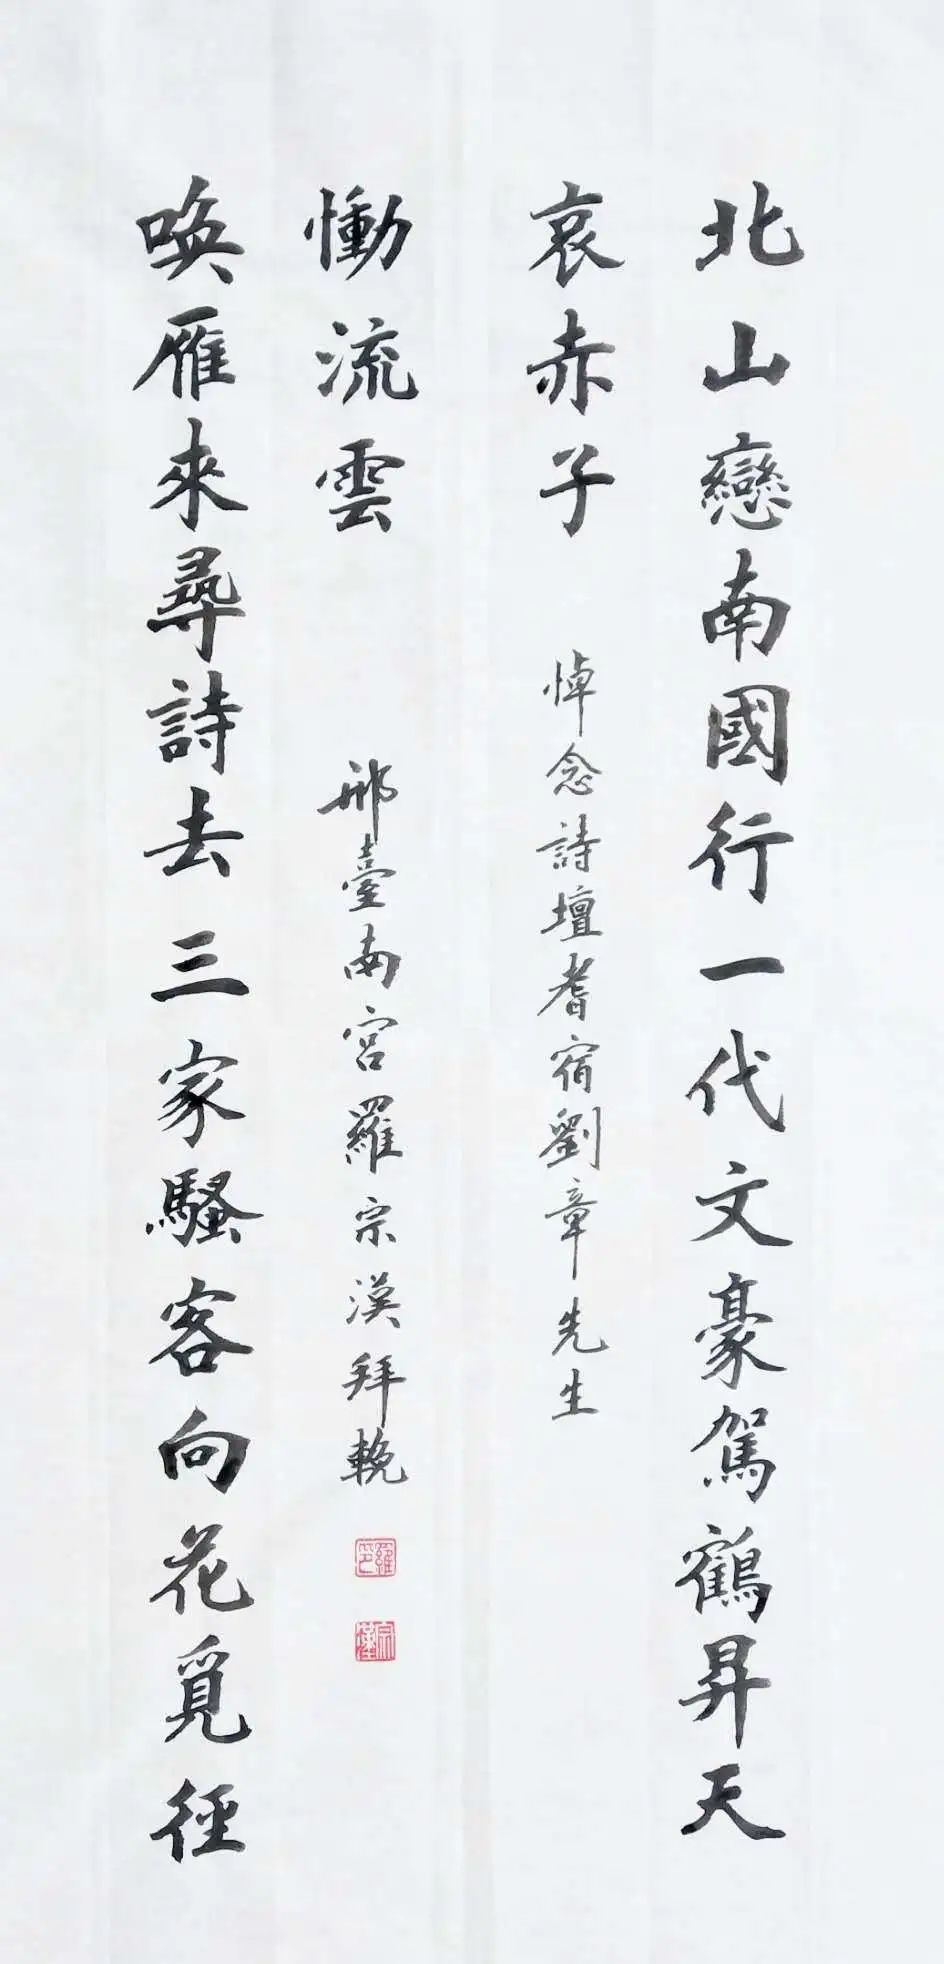 北山戀南國行一代文豪駕鶴昇天
哀赤子
悼念詩壇耆宿劉章先生
喚雁來尋詩去三家騷客向花覓徑
慟流雲
邢臺南宮羅宗漢拜輓
羅印
宗漢